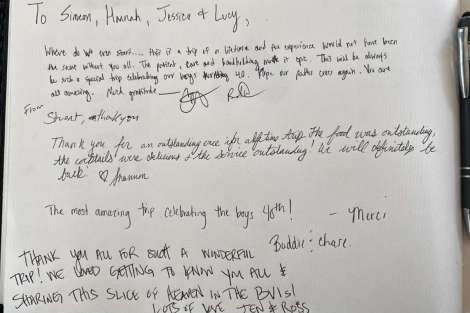 To Simon, Hannah, Jessica & Lucy,
Where do we even start.... this is a trip of a lifetime and the experience would not have been
the same without you all. The patient, care and handholding made it epic. This will be always
be such a special trip celebrating our boys turning 40. Hope our paths cross again. You are
all amazing. Much gratitude
From
Thank you for an outstanding once a lifetime trip. The food was outstanding,
the cocktails were delicious & the service outstanding! We will definitely be
back ♡
The most amazing trip celebrating the boys 40th!
- Merci
Buddie : Chase.
THANK YOU ALL FOR SUCH A WONDERFUL
TRIP! WE LOVED GETTING TO KNOW YOU ALL &
SHARING THIS SLICE OF HEAVEN IN THE BVIs!
LOTS OF LOVE JEN & ROSS